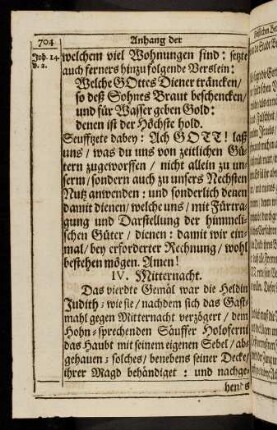 704
Anhang der
Joh. 14.
v. 2.
welchem viel Wohnungen sind: setzte
auch ferners hinzu folgende Verslein:
Welche GOttes Diener träncken/
so deß Sohnes Braut beschencken/
und für Wasser geben Gold:
denen ist der Höchste hold.
Seufftzete dabey: Ach GOTT! laß
uns / was du uns von zeitlichen Gü-
tern zugeworffen / nicht allein zu un-
serm / sondern auch zu unsers Nechsten
Nutz anwenden: und sonderlich denen
damit dienen / welche uns / mit Fürtra-
gung und Darstellung der himmeli-
schen Güter / dienen: damit wir ein-
mal / bey erforderter Rechnung / wohl
bestehen mögen. Amen!
IV. Mitternacht.
Das vierdte Gemäl war die Heldin
Judith: wie sie / nachdem sich das Gast-
mahl gegen Mitternacht verzögert / dem
Hohn-sprechenden Säuffer Holoferni
das Haubt mit seinem eigenen Sebel / ab-
gehauen: solches / benebens seiner Decke/
ihrer Magd behändiget: und nachge-
hends